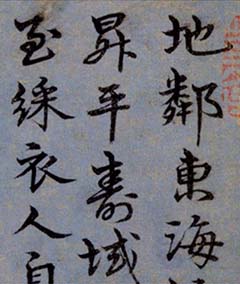 地鄰東海
昇平壽域
至綵衣人自